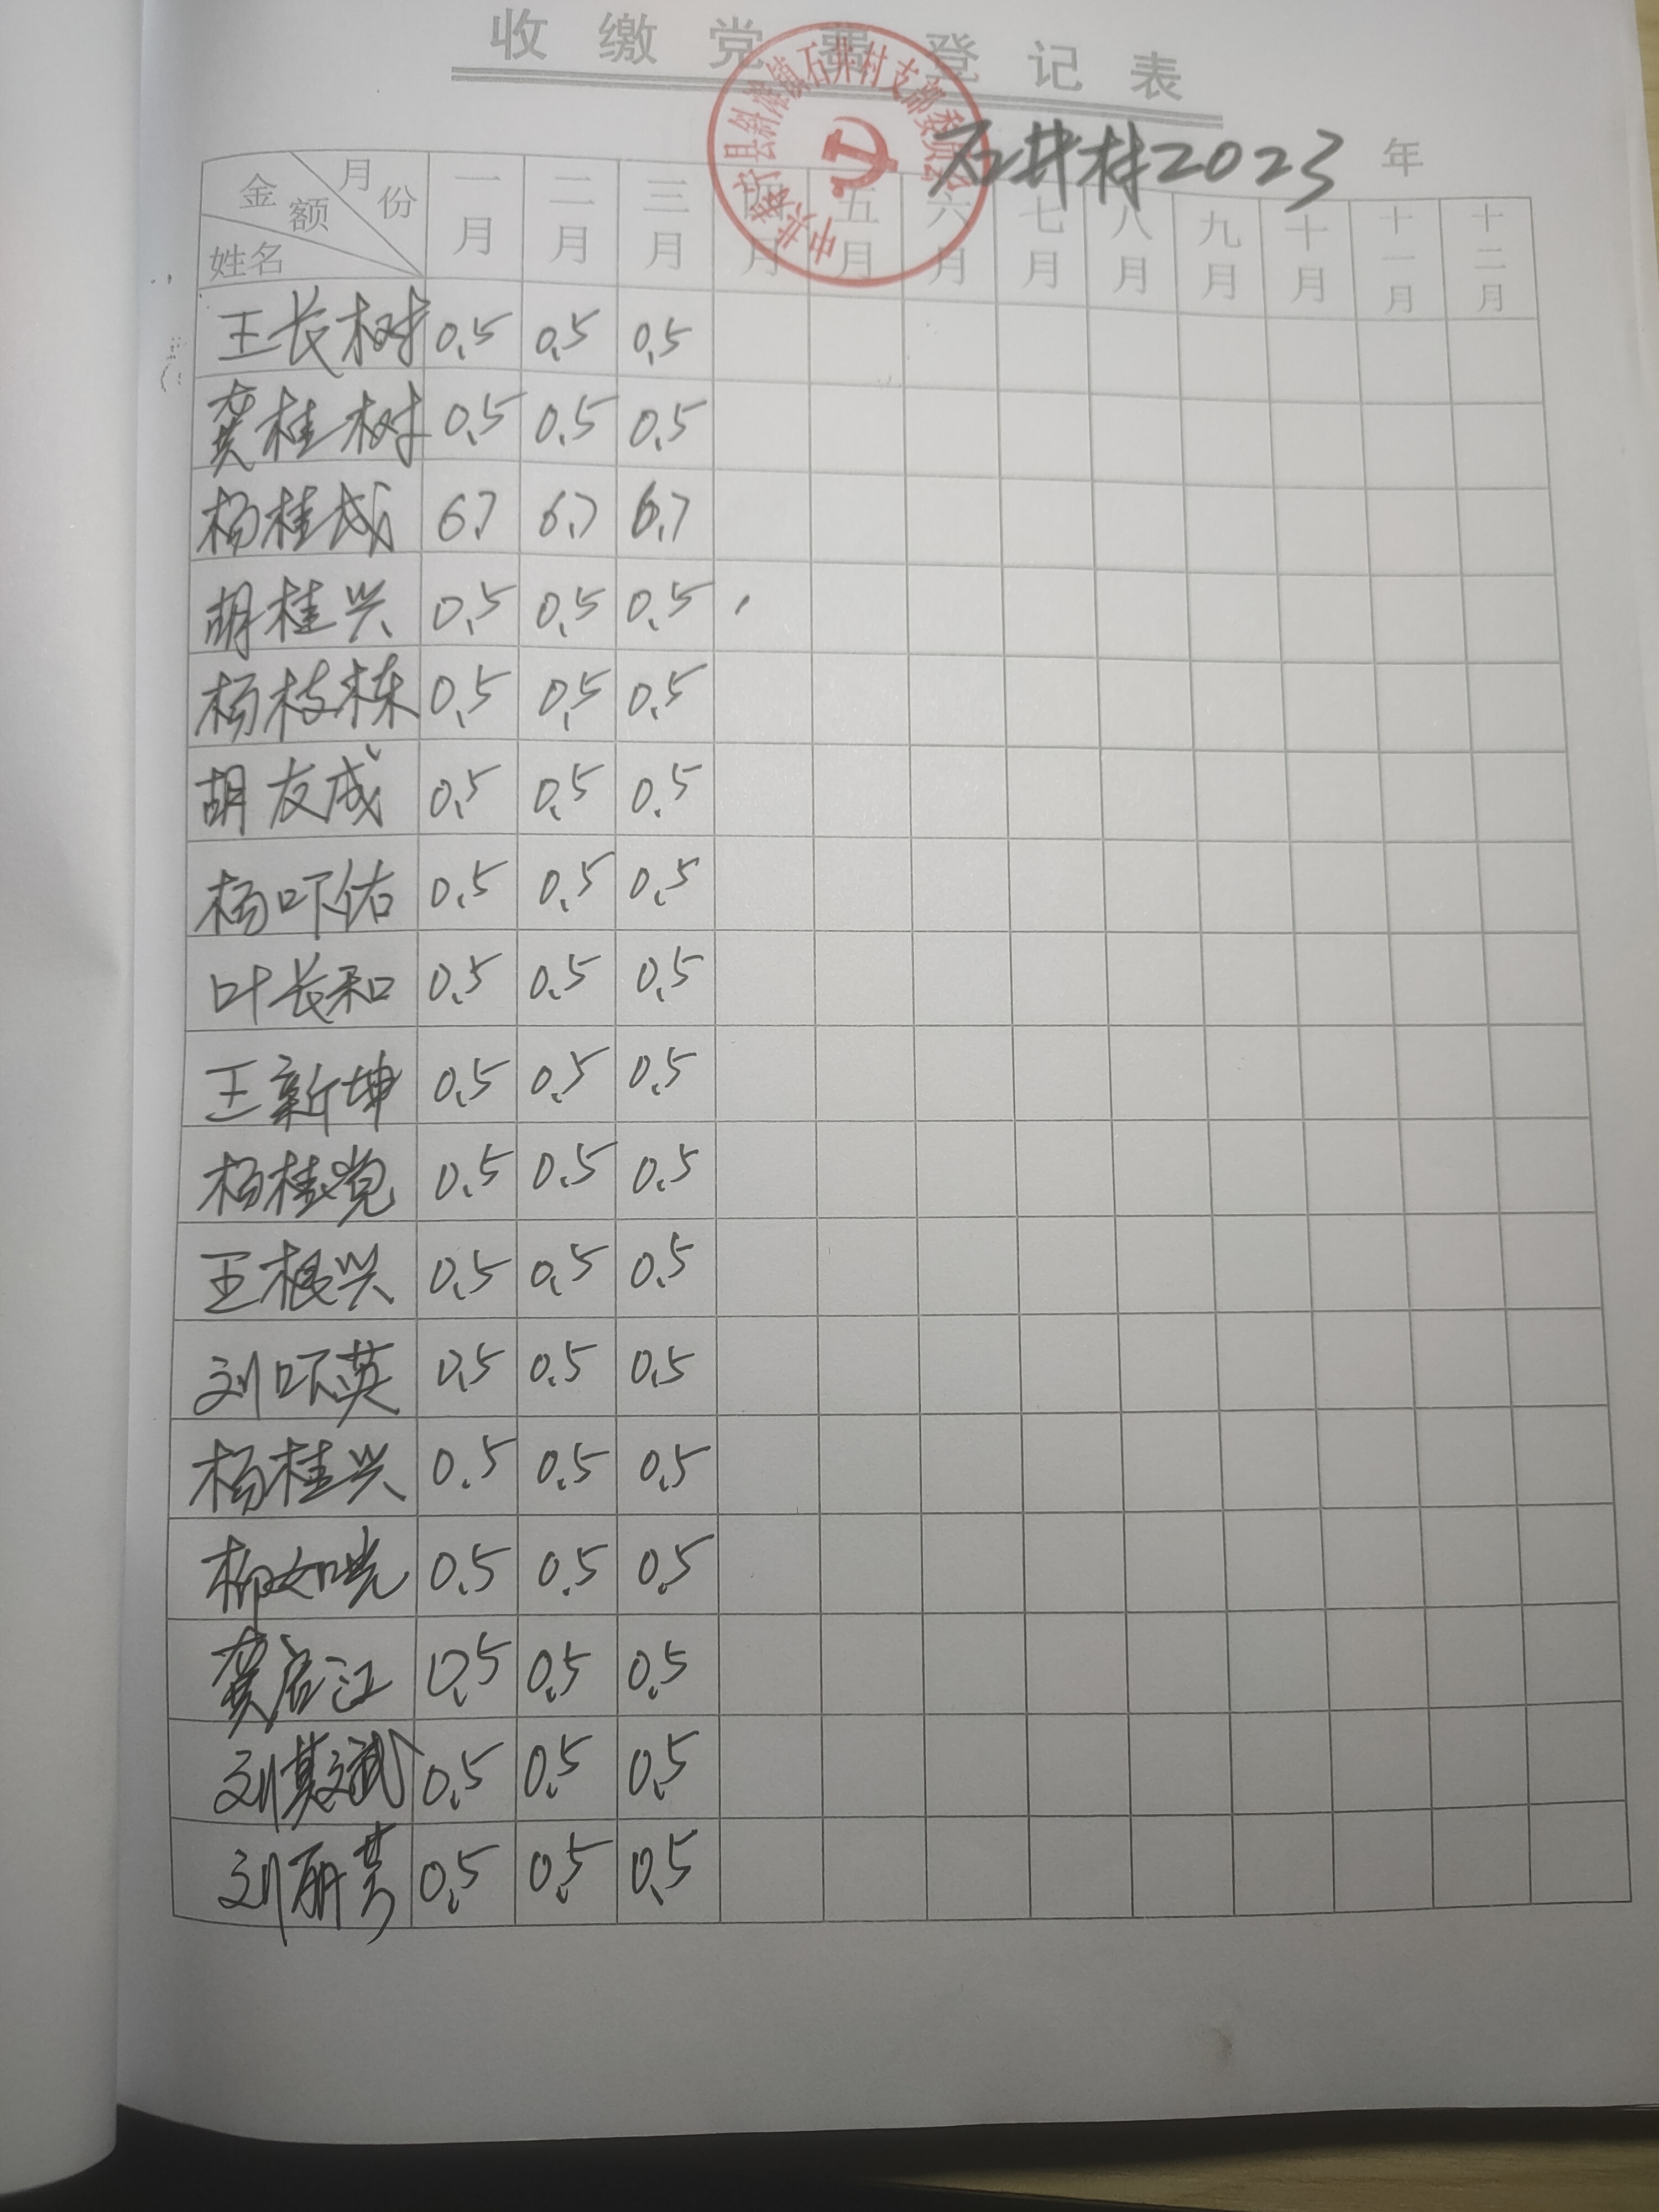 收缴党费登记表
中共蕲春县斜滩镇石井村支部委员会
石井村2023年
金额 月份 姓名 一月 二月 三月 四月 五月 六月 七月 八月 九月 十月 十一月 十二月
王长树 0.5 0.5 0.5
龚桂树 0.5 0.5 0.5
杨桂成 6.7 6.7 6.7
胡桂兴 0.5 0.5 0.5
杨枝栋 0.5 0.5 0.5
胡友成 0.5 0.5 0.5
杨吓佑 0.5 0.5 0.5
叶长和 0.5 0.5 0.5
王新坤 0.5 0.5 0.5
杨桂党 0.5 0.5 0.5
王根兴 0.5 0.5 0.5
刘吓英 0.5 0.5 0.5
杨桂兴 0.5 0.5 0.5
柳如光 0.5 0.5 0.5
龚启江 0.5 0.5 0.5
刘其斌 0.5 0.5 0.5
刘丽芳 0.5 0.5 0.5